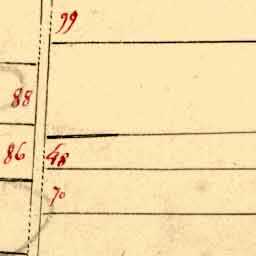 99
88
86 48
70